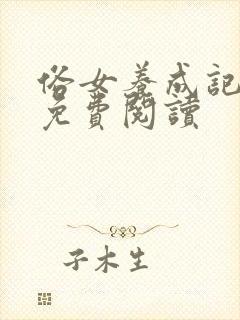 俗女養成記
免費閱讀
子木生